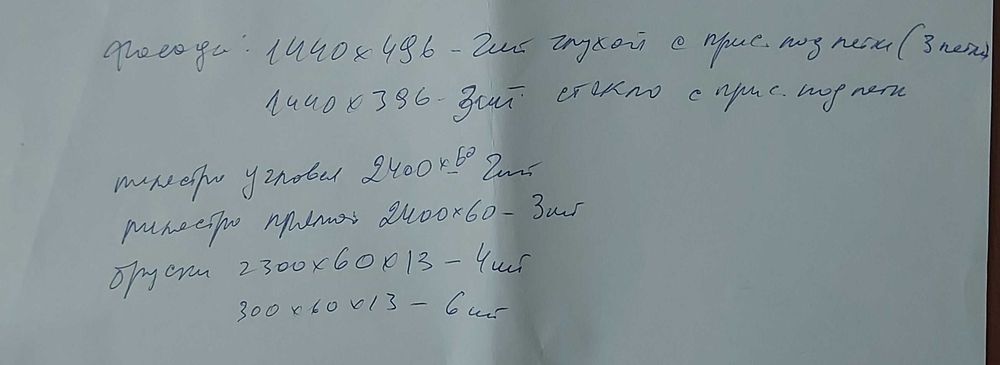 Фасады: 1440х496 - 2шт глухой с прис. под петли (3 петли)
1440х396 - 3шт стекло с прис. под петли
пилястра угловая 2400х60 2шт
пилястра прямой 2400х60 - 3шт
бруски 2300х60х13 - 4шт
300х60х13 - 6шт